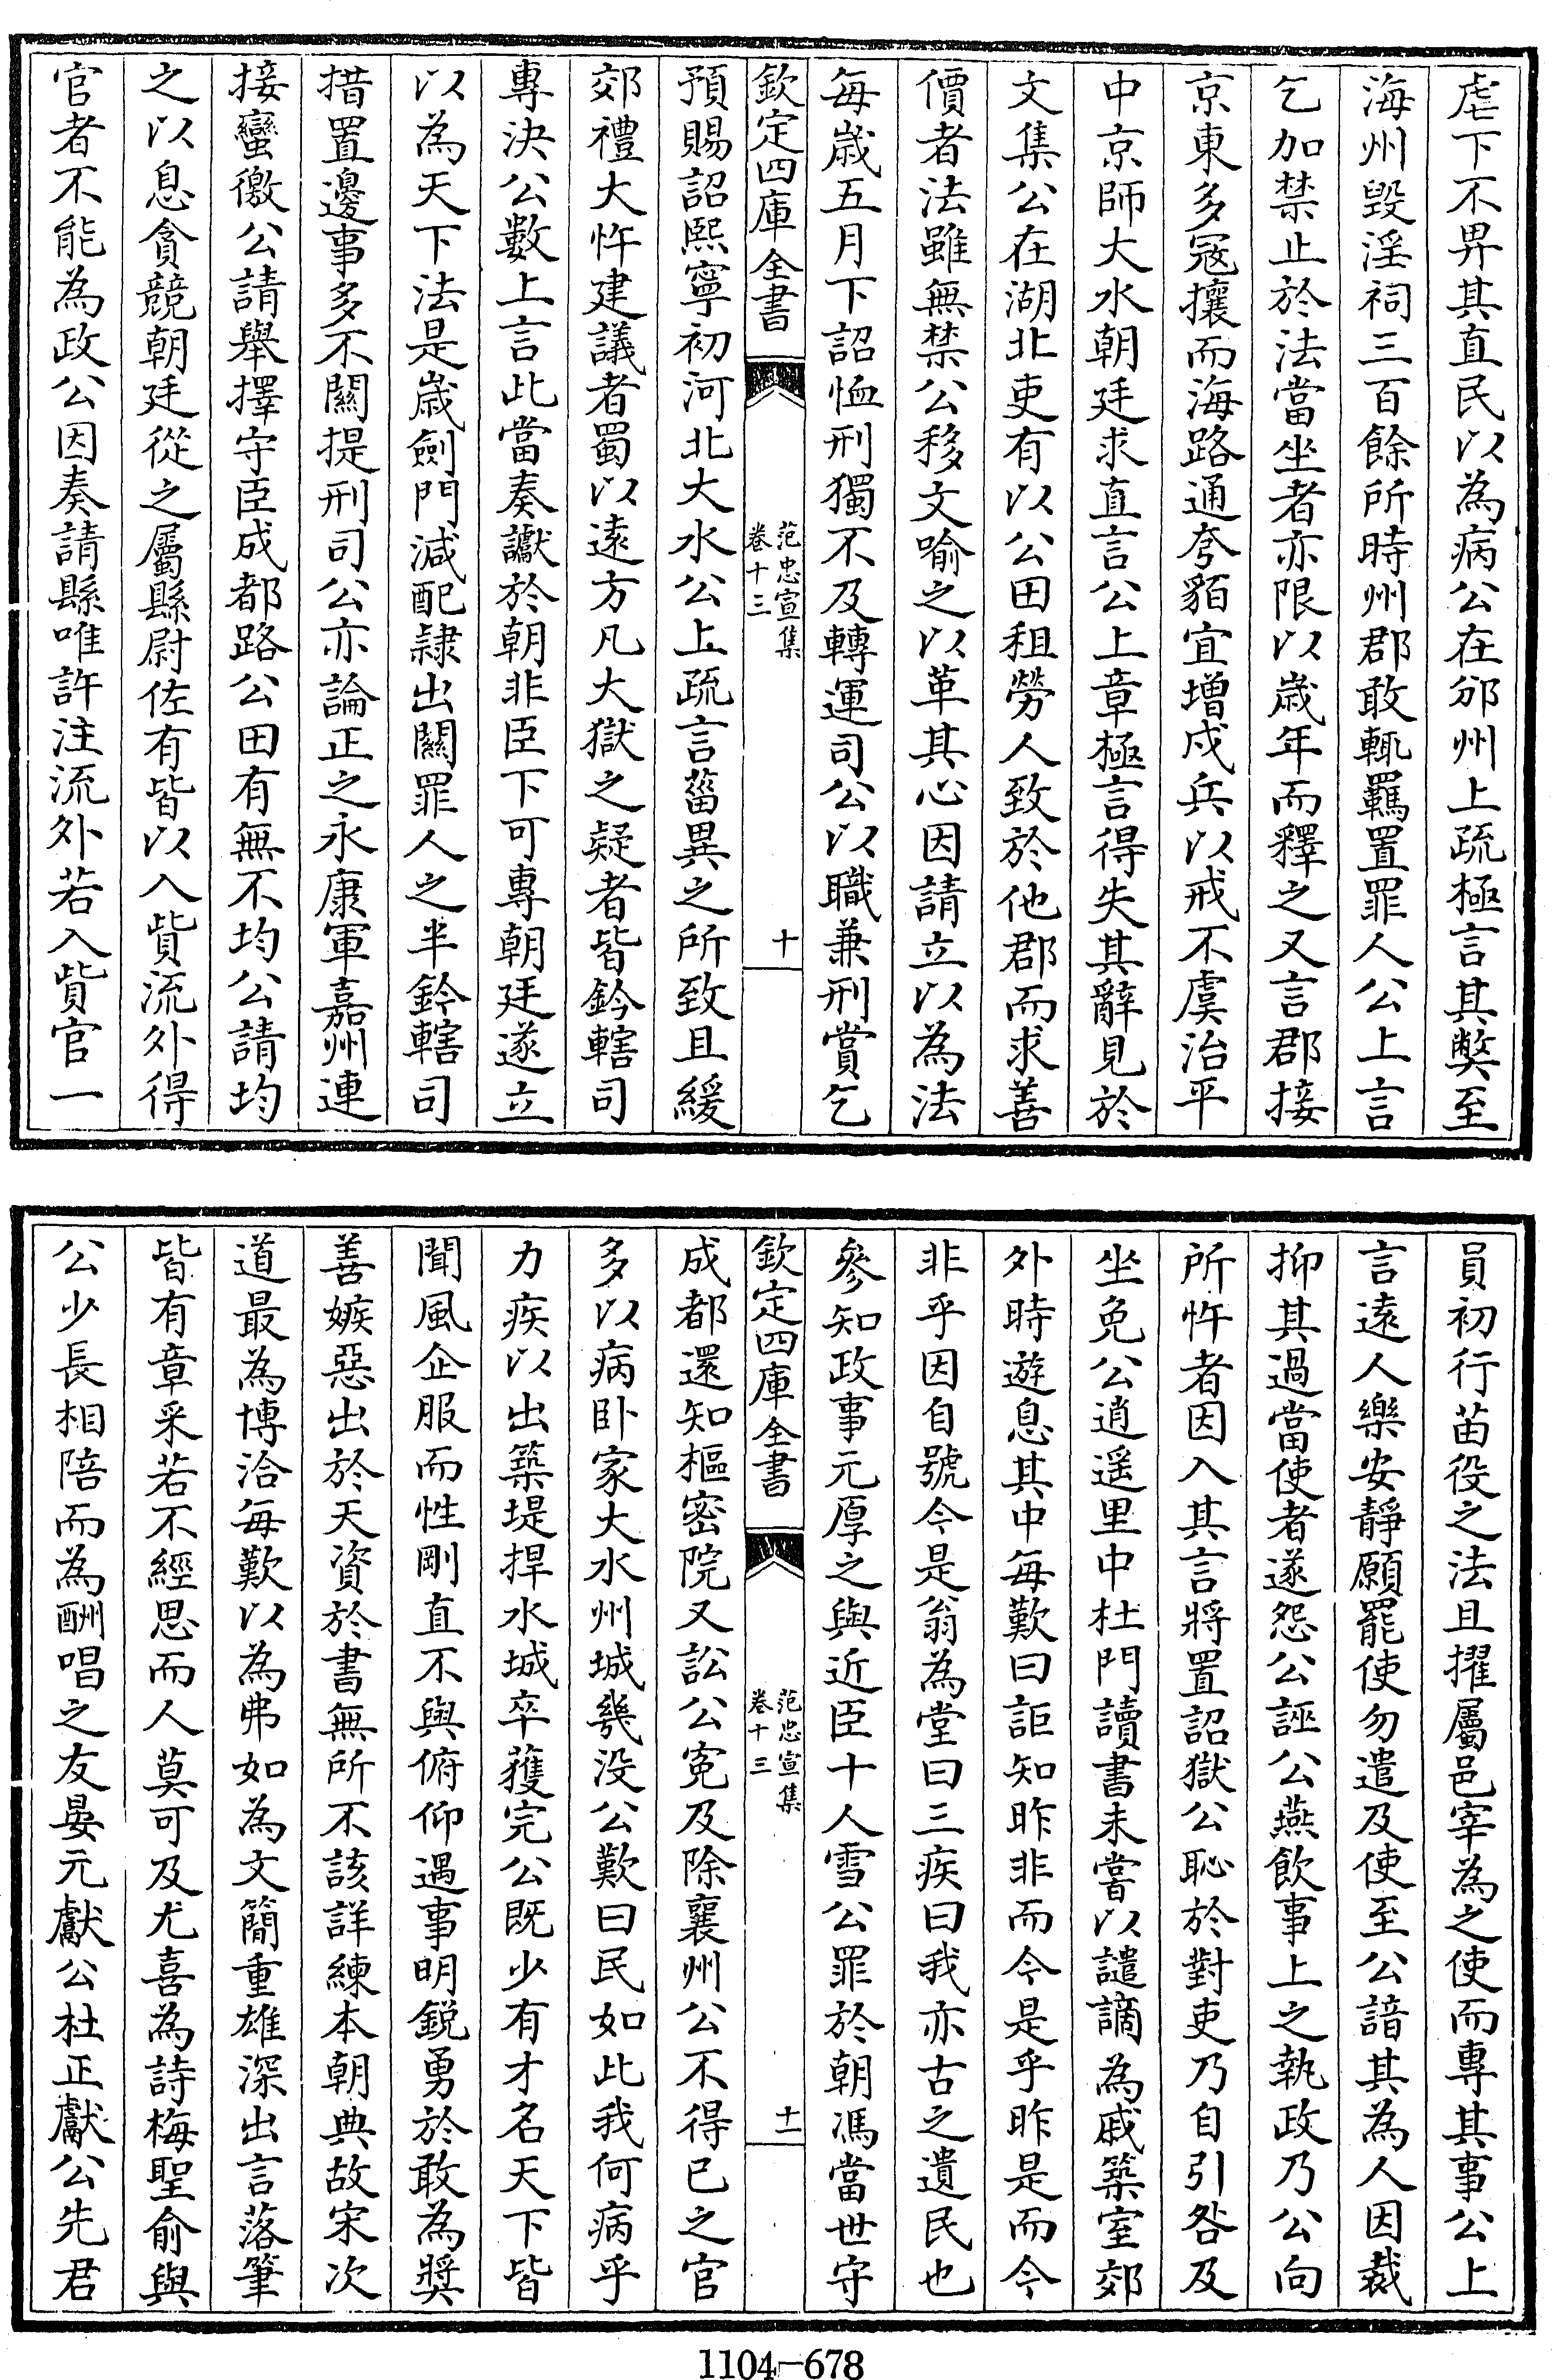 虐下不畀其直民以為病公在邠州上疏極言其弊至
海州毀淫祠三百餘所時州郡敢輒羈置罪人公上言
乞加禁止於法當坐者亦限以歲年而釋之又言郡接
京東多冦攘而海路通夸貊宜增戍兵以戒不虞治平
中京師大水朝廷求直言公上章極言得失其辭見於
文集公在湖北吏有以公田租勞人致於他郡而求善
價者法雖無禁公移文喻之以革其心因請立以為法
每歲五月下詔恤刑獨不及轉運司公以職兼刑賞乞
欽定四庫全書
范忠宣集
卷十三
十
預賜詔熙寧初河北大水公上疏言菑異之所致且緩
郊禮大忤建議者蜀以遠方凡大獄之疑者皆鈐轄司
專決公數上言此當奏讞於朝非臣下可專朝廷遂立
以為天下法是歲劍門減配隷出關罪人之半鈐轄司
措置邊事多不關提刑司公亦論正之永康軍嘉州連
接蠻徼公請舉擇守臣成都路公田有無不均公請均
之以息貪競朝廷從之屬縣尉佐有皆以入貲流外得
官者不能為政公因奏請縣唯許注流外若入貲官一
員初行苗役之法且擢屬邑宰為之使而專其事公上
言遠人樂安靜願罷使勿遣及使至公諳其為人因裁
抑其過當使者遂怨公誣公燕飲事上之執政乃公向
所忤者因入其言將置詔獄公恥於對吏乃自引咎及
坐免公逍遥里中杜門讀書未嘗以譴謫為慼築室郊
外時遊息其中每歎曰詎知昨非而今是乎昨是而今
非乎因自號今是翁為堂曰三疾曰我亦古之遺民也
參知政事元厚之與近臣十人雪公罪於朝馮當世守
欽定四庫全書
范忠宣集
卷十三
十一
成都還知樞密院又訟公寃及除襄州公不得已之官
多以病卧家大水州城幾没公歎曰民如此我何病乎
力疾以出築堤捍水城卒獲完公既少有才名天下皆
聞風企服而性剛直不與俯仰遇事明銳勇於敢為奬
善嫉惡出於天資於書無所不該詳練本朝典故宋次
道最為博洽每歎以為弗如為文簡重雄深出言落筆
皆有章采若不經思而人莫可及尤喜為詩梅聖俞與
公少長相陪而為酬唱之友晏元獻公杜正獻公先君
1104-678